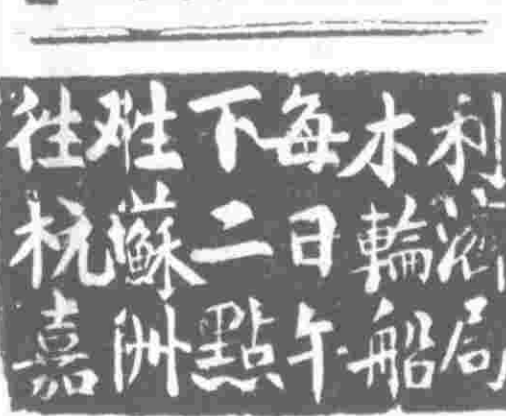 利濟局
木輪船
每日午
下二點
蘇洲
徃杭嘉